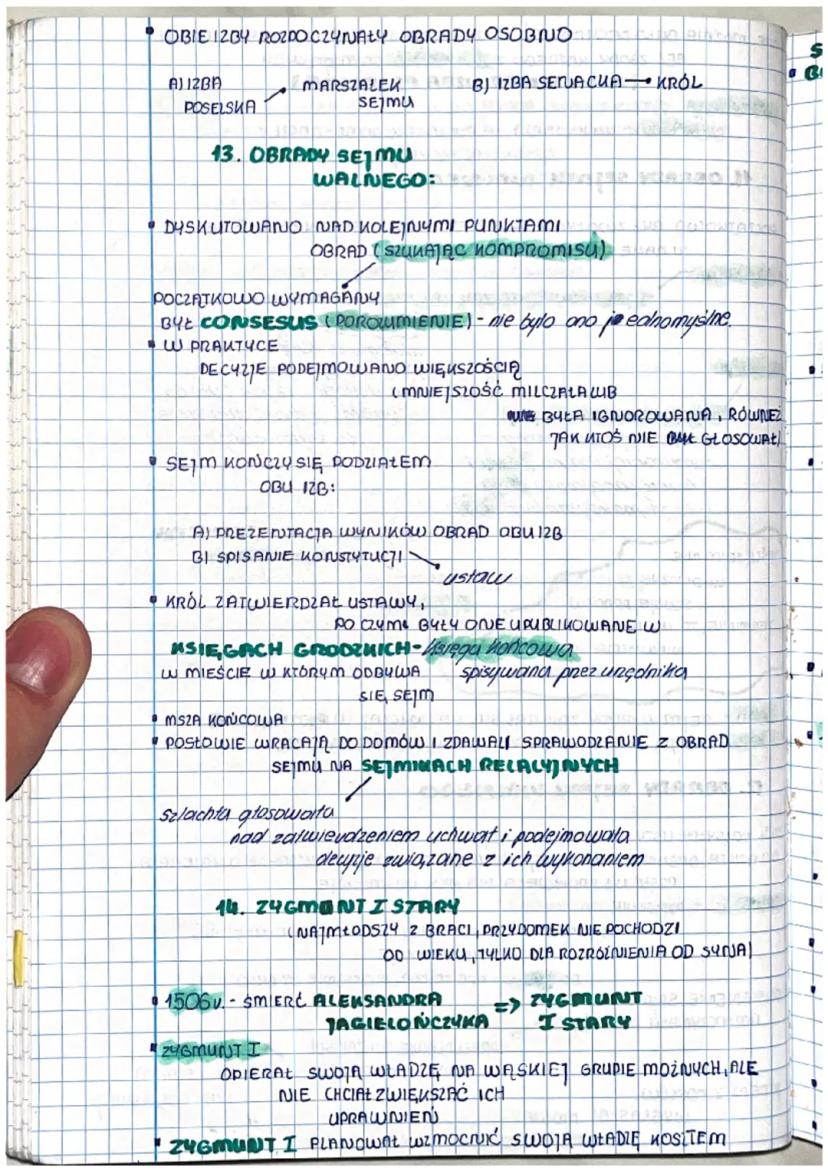 • OBIE IZBY ROZPOCZYNAŁY OBRADY OSOBNO
A) IZBA POSELSKA → MARSZAŁEK SEJMU
B) IZBA SENACKA → KRÓL
13. OBRADY SEJMU
WALNEGO:
• DYSKUTOWANO NAD KOLEJNYMI PUNKTAMI
OBRAD (SZUKAJĄC KOMPROMISU)
POCZĄTKOWO WYMAGANY
BYŁ CONSESUS (POROZUMIENIE) - nie było ono jednomyślne.
• W PRAKTYCE
DECYZJE PODEJMOWANO WIĘKSZOŚCIĄ
(MNIEJSZOŚĆ MILCZAŁA LUB
BYŁA IGNOROWANA, RÓWNEŻ
JAK KTOŚ NIE GŁOSOWAŁ)
• SEJM KOŃCZY SIĘ PODZIAŁEM
OBU IZB:
A) PREZENTACJA WYNIKÓW OBRAD OBU IZB
B) SPISANIE KONSTYTUCJI
ustaw
• KRÓL ZATWIERDZAŁ USTAWY,
PO CZYM BYŁY ONE UPUBLIKOWANE W
KSIĘGACH GRODZKICH - księga końcowa
W MIEŚCIE W KTÓRYM ODBYWA spisywana przez urzędnika
SIĘ SEJM
• MSZA KOŃCOWA
• POSŁOWIE WRACAJĄ DO DOMÓW I ZDAWALI SPRAWODZANIE Z OBRAD
SEJMU NA SEJMIKACH RELACYJNYCH
szlachta głosowała
nad zatwierdzeniem uchwał i podejmowała
decyzje związane z ich wykonaniem
14. ZYGMUNT I STARY
(NAJMŁODSZY Z BRACI, PRZYDOMEK NIE POCHODZI
OD WIEKU, TYLKO DLA ROZRÓŻNIENIA OD SYNA)
• 1506r. - ŚMIERĆ ALEKSANDRA => ZYGMUNT
JAGIELOŃCZYKA I STARY
• ZYGMUNT I
OPIERAŁ SWOJĄ WŁADZĘ NA WĄSKIEJ GRUPIE MOŻNYCH, ALE
NIE CHCIAŁ ZWIĘKSZAĆ ICH
UPRAWNIEŃ
• ZYGMUNT I PLANOWAŁ WZMOCNIĆ SWOJĄ WŁADZĘ KOSZTEM